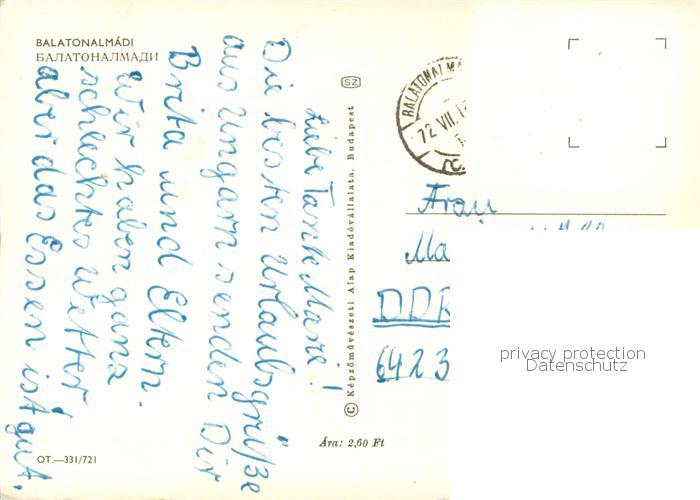 BALATONALMÁDI
БАЛАТОНАЛМАДИ
Liebe Tante Marie!
Die besten Urlaubsgrüße
aus Ungarn senden Dir
Brita und Eltern.
Wir haben ganz
schlechtes Wetter,
aber das Essen ist gut.
OT.—331/721
SZ
© Képzőművészeti Alap Kiadóvállalata, Budapest
Ára: 2,60 Ft
72 VII.
Frau
Ma
DDR
6423
privacy protection
Datenschutz